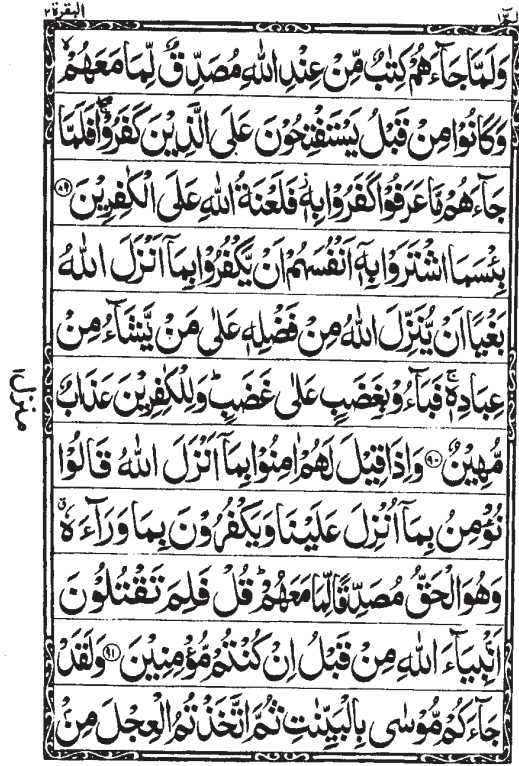 البقرة ٢
الٓمّٓ ١
وَلَمَّا جَآءَهُمْ كِتٰبٌ مِّنْ عِنْدِ اللّٰهِ مُصَدِّقٌ لِّمَا مَعَهُمْ ۙ
وَكَانُوْا مِنْ قَبْلُ يَسْتَفْتِحُوْنَ عَلَى الَّذِيْنَ كَفَرُوْا ۚ فَلَمَّا
جَآءَهُمْ مَّا عَرَفُوْا كَفَرُوْا بِهٖ ۫ فَلَعْنَةُ اللّٰهِ عَلَى الْكٰفِرِيْنَ ۝٨٩
بِئْسَمَا اشْتَرَوْا بِهٖۤ اَنْفُسَهُمْ اَنْ يَّكْفُرُوْا بِمَآ اَنْزَلَ اللّٰهُ
بَغْيًا اَنْ يُّنَزِّلَ اللّٰهُ مِنْ فَضْلِهٖ عَلٰى مَنْ يَّشَآءُ مِنْ
عِبَادِهٖ ۚ فَبَآءُوْ بِغَضَبٍ عَلٰى غَضَبٍ ؕ وَلِلْكٰفِرِيْنَ عَذَابٌ
مُّهِيْنٌ ۝٩٠ وَاِذَا قِيْلَ لَهُمْ اٰمِنُوْا بِمَآ اَنْزَلَ اللّٰهُ قَالُوْا
نُؤْمِنُ بِمَآ اُنْزِلَ عَلَيْنَا وَيَكْفُرُوْنَ بِمَا وَرَآءَهٗ ۗ
وَهُوَ الْحَقُّ مُصَدِّقًا لِّمَا مَعَهُمْ ؕ قُلْ فَلِمَ تَقْتُلُوْنَ
اَنْۢبِيَآءَ اللّٰهِ مِنْ قَبْلُ اِنْ كُنْتُمْ مُّؤْمِنِيْنَ ۝٩١ وَلَقَدْ
جَآءَكُمْ مُّوْسٰى بِالْبَيِّنٰتِ ثُمَّ اتَّخَذْتُمُ الْعِجْلَ مِنْۢ
منزل ١